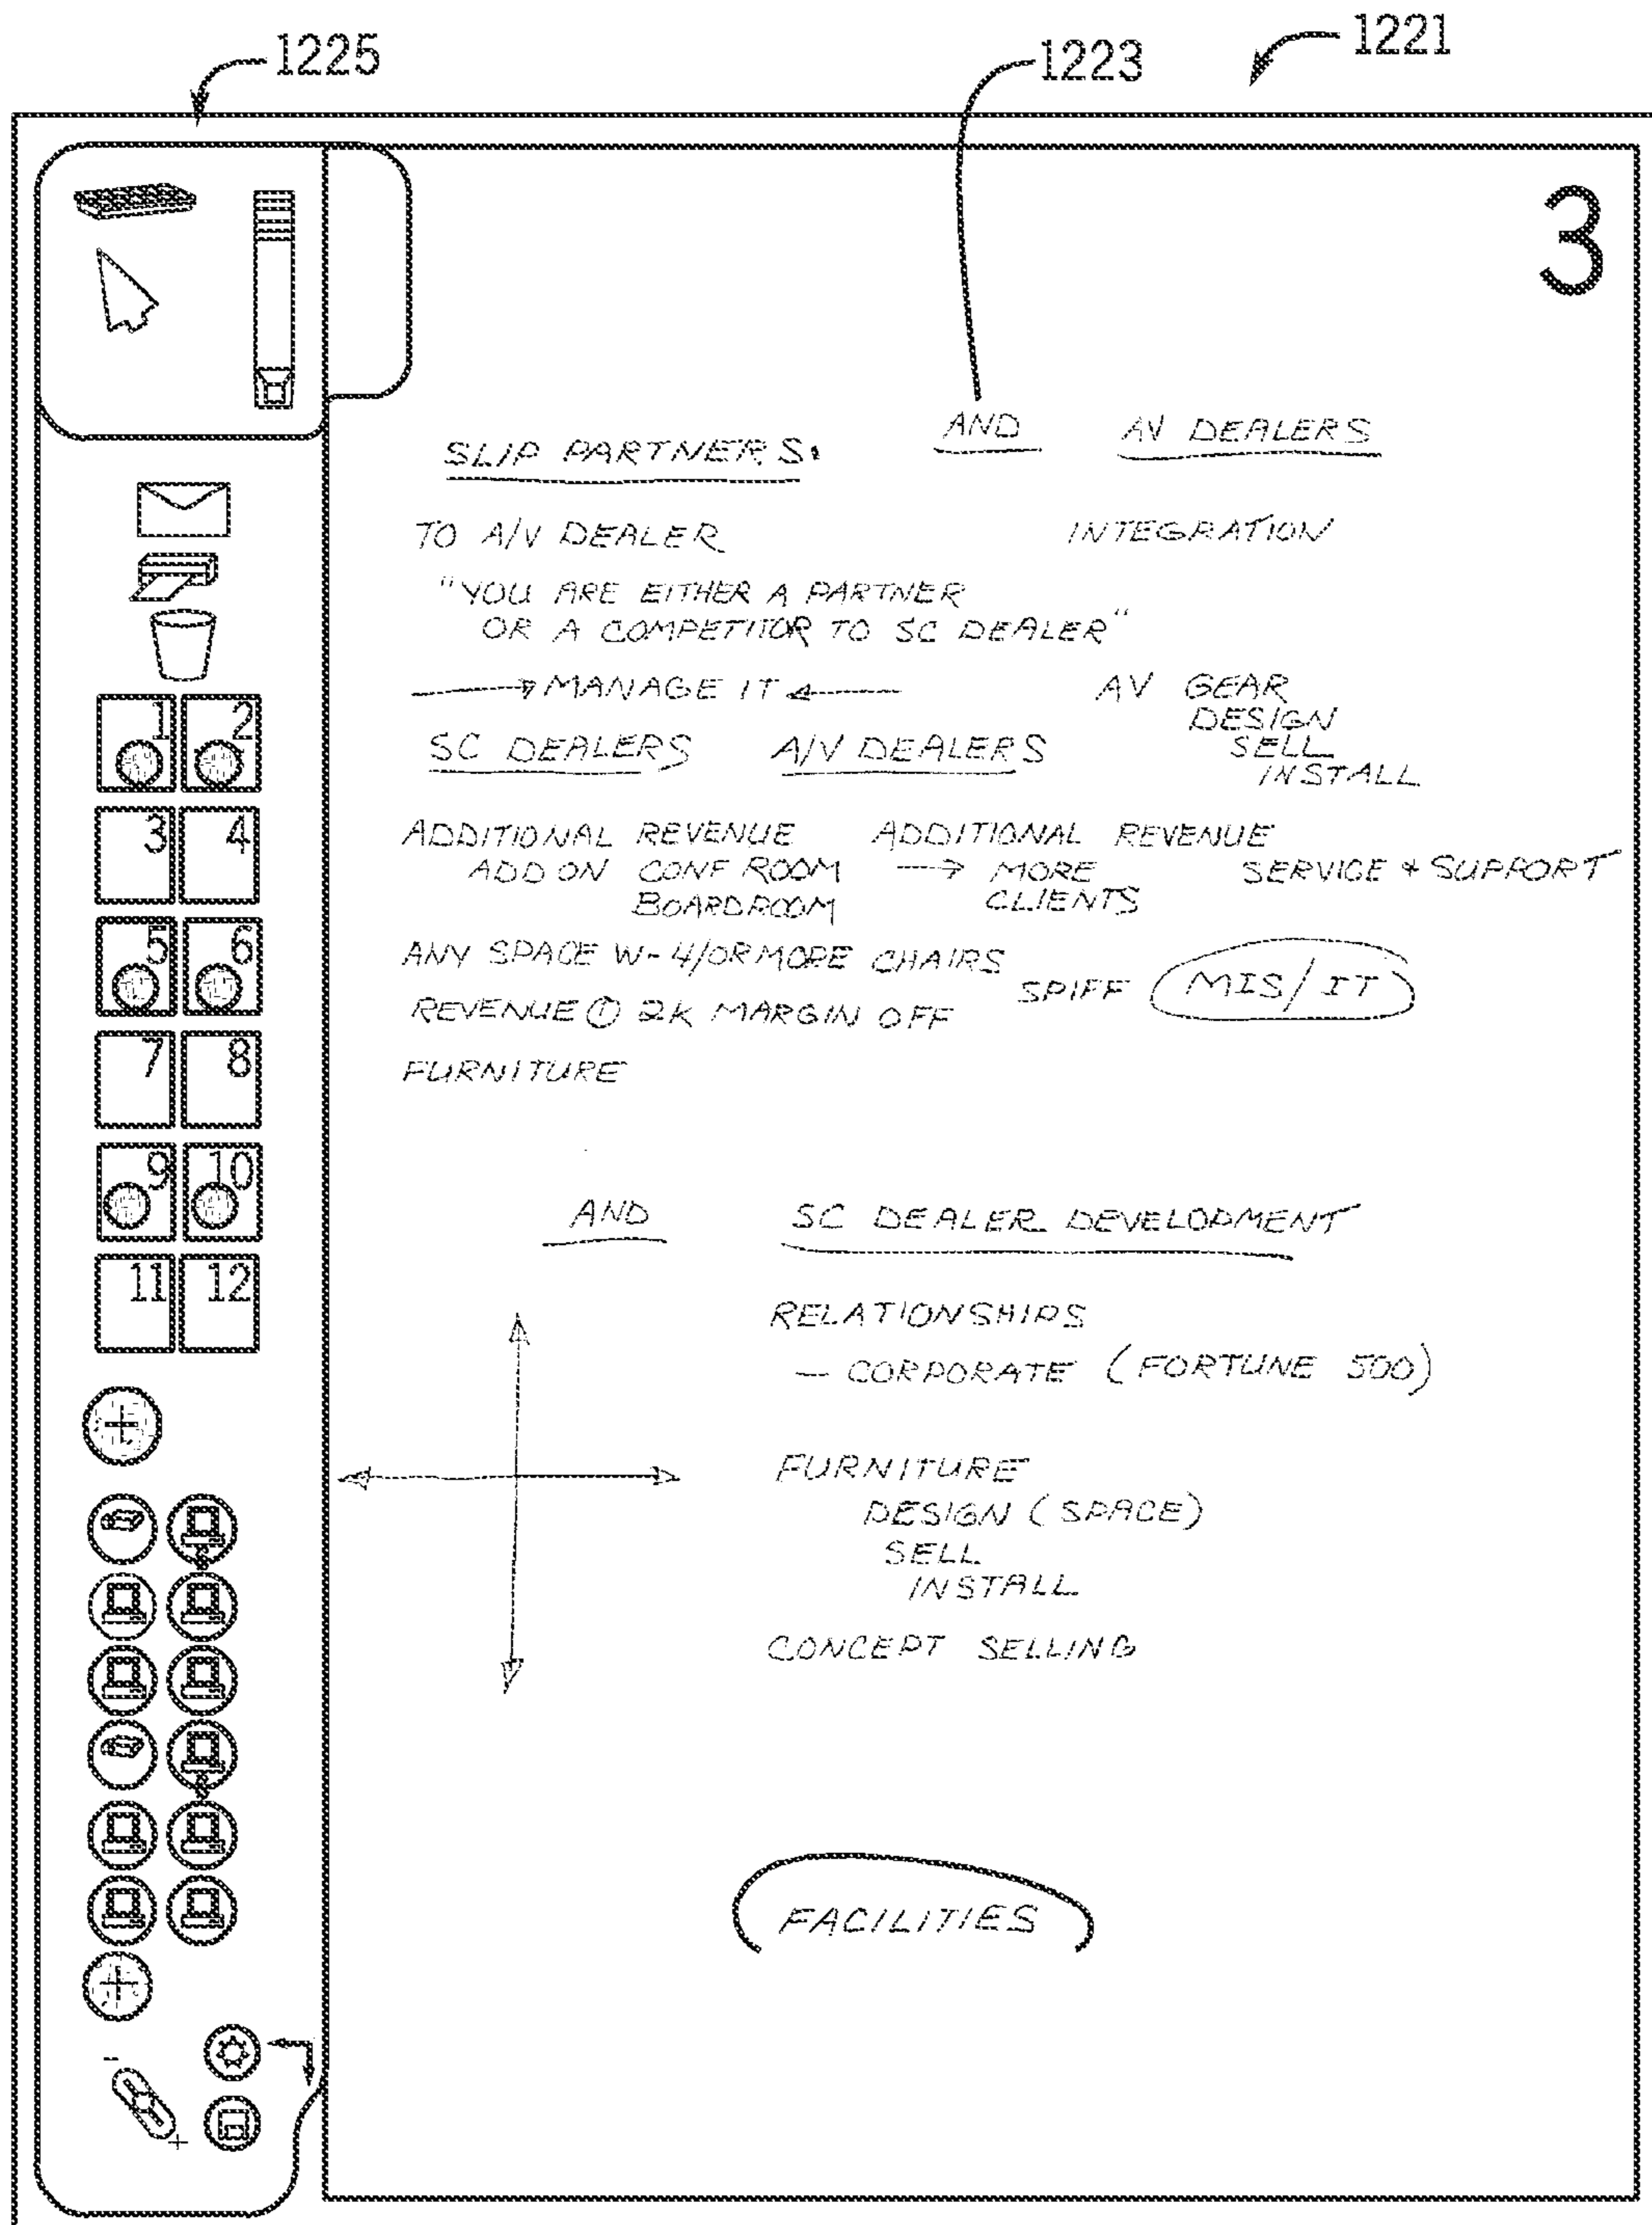 1225
1223
1221
3
SLIP PARTNERS:
AND
AV DEALERS
TO A/V DEALER
INTEGRATION
"YOU ARE EITHER A PARTNER
OR A COMPETITOR TO SC DEALER"
MANAGE IT
AV GEAR
DESIGN
SELL
INSTALL
SC DEALERS
A/V DEALERS
ADDITIONAL REVENUE
ADD ON CONF ROOM
BOARDROOM
ADDITIONAL REVENUE
→ MORE
CLIENTS
SERVICE + SUPPORT
ANY SPACE W- 4/OR MORE CHAIRS
SPIFF
MIS/IT
REVENUE ① 2K MARGIN OFF
FURNITURE
AND
SC DEALER DEVELOPMENT
RELATIONSHIPS
— CORPORATE (FORTUNE 500)
FURNITURE
DESIGN (SPACE)
SELL
INSTALL
CONCEPT SELLING
FACILITIES
1 2
3 4
5 6
7 8
9 10
11 12
+
+
-
+